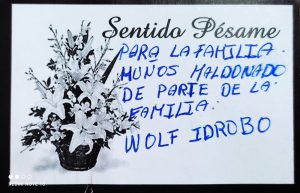 Sentido Pésame
PARA LA FAMILIA.
MUNOS MALDONADO
DE PARTE DE LA
FAMILIA.
WOLF IDROBO